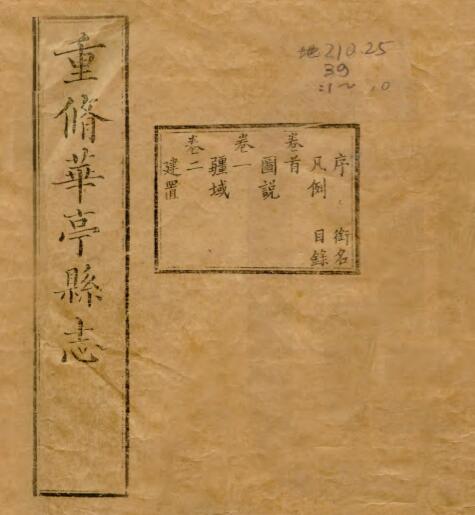 重脩華亭縣志
序 銜名
凡例 目錄
卷首
圖説
卷一
疆域
卷二
建置
地210.25
39
:1~